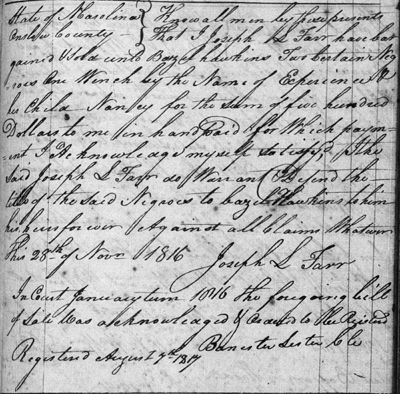 State of N Carolina } Know all men by these presents
Onslow County - } That I Joseph L Farr have bar
gained & Sold unto Bazel hawkins Two Certain Neg
roes One Winch by the Name of Experience &
his Child Nancy for the Sum of five hundred
Dollars to me in hand Paid for Which paym
ent I Acknowledge myself satisfyd, I the
Said Joseph L Farr do Warrant & Defend the
title of the Said Negroes to bazel Hawkins to him
his heirs forever Against all Claims Whatever
This 28th of Novr 1816
Joseph L Farr
In Court January term 1816 the foregoing bill
of Sale Was acknowledged & Ordered to be Registered
Registered August 7th 1817 Banester Lester Clk